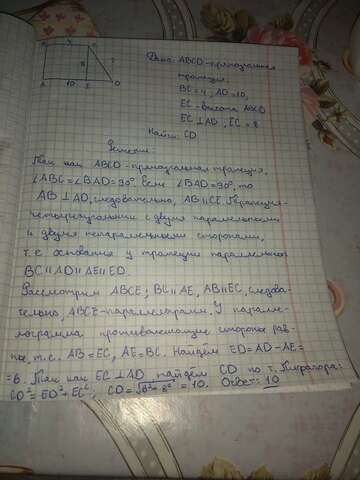 B 4 C
8
A 10 E D
Дано: ABCD - прямоугольная
трапеция,
BC = 4, AD = 10,
EC - высота ABCD
EC ⊥ AD, EC = 8
Найти: CD
Решение:
Так как ABCD - прямоугольная трапеция,
∠ABC = ∠BAD = 90°. Если ∠BAD = 90°, то
AB ⊥ AD, следовательно, AB || CE. Трапеция -
четырёхугольник с двумя параллельными
и двумя непараллельными сторонами,
т.е. основания у трапеции параллельны
BC || AD || AE || ED.
Рассмотрим ABCE; BC || AE, AB || EC, следова-
тельно, ABCE - параллелограмм. У паралле-
лограмма противолежащие стороны рав-
ны, т.е. AB = EC, AE = BC. Найдём ED = AD - AE =
= 6. Так как EC ⊥ AD найдём CD по т. Пифагора:
CD² = ED² + EC², CD = = 10. Ответ: 10